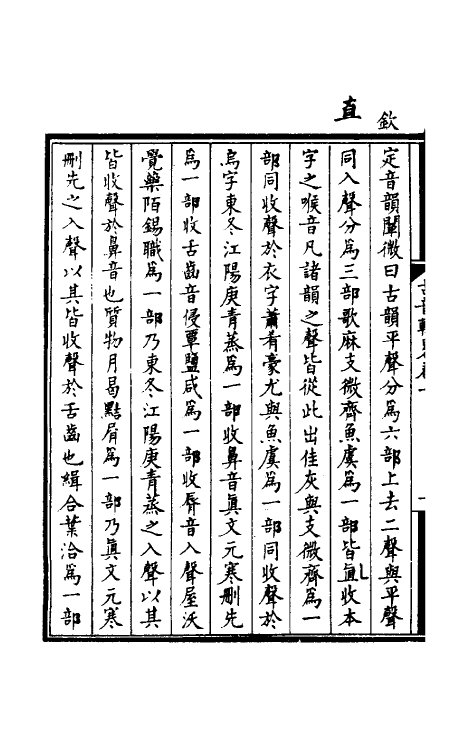 欽定音韻闡微曰古韻平聲分爲六部上去二聲與平聲
直
同入聲分爲三部歌麻支微齊魚虞爲一部皆直收本
字之喉音凡諸韻之聲皆從此出佳灰與支微齊爲一
部同收聲於衣字蕭肴豪尤與魚虞爲一部同收聲於
烏字東冬江陽庚青蒸爲一部收鼻音眞文元寒刪先
爲一部收舌齒音侵覃鹽咸爲一部收脣音入聲屋沃
覺藥陌錫職爲一部乃東冬江陽庚青蒸之入聲以其
皆收聲於鼻音也質物月曷黠屑爲一部乃眞文元寒
刪先之入聲以其皆收聲於舌齒也緝合葉洽爲一部